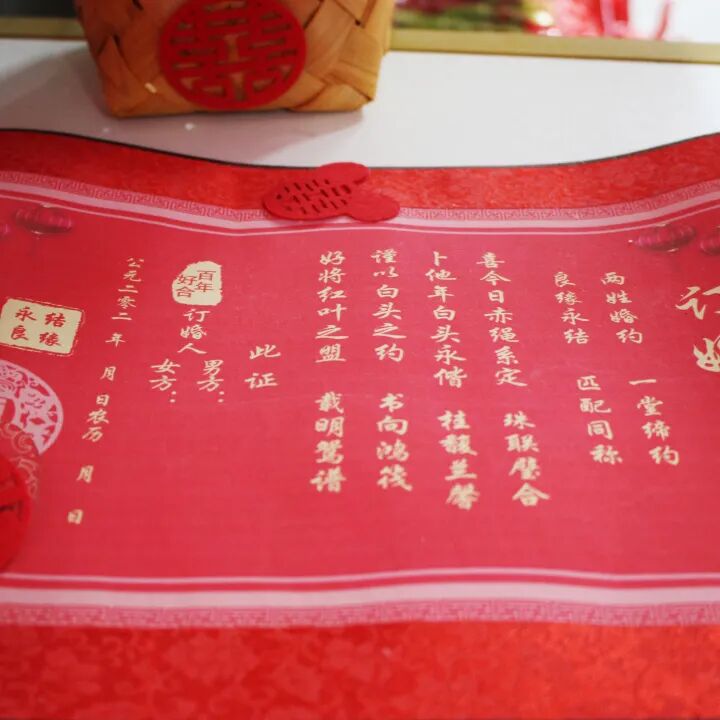 订婚
两姓婚约 一堂缔约
良缘永结 匹配同称
喜今日赤绳系定 珠联璧合
卜他年白头永偕 桂馥兰馨
谨以白头之约 书向鸿笺
好将红叶之盟 载明鸳谱
此证
百年
好合
订婚人 男方：
女方：
公元二零二 年 月 日农历 月 日
永结
良缘